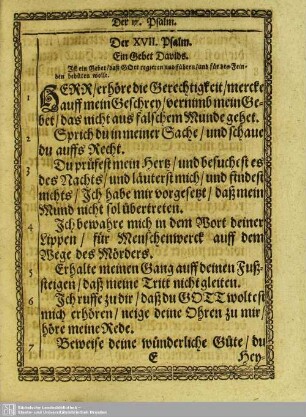 Der XVII. Psalm.
Ein Gebet Davids.
Ist ein Gebet / daß GOtt regieren und führen / und für den Fein-
den behüten wolle.
1 HERR / erhöre die Gerechtigkeit / mercke
auff mein Geschrey / vernimb mein Ge-
bet / das nicht aus falschem Munde gehet.
2 Sprich du in meiner Sache / und schaue
du auffs Recht.
3 Du prüfest mein Hertz / und besuchest es
des Nachts / und läuterst mich / und findest
nichts / Ich habe mir vorgesetzt / daß mein
Mund nicht sol übertreten.
4 Ich bewahre mich in dem Wort deiner
Lippen / für Menschenwerck auff dem
Wege des Mörders.
5 Erhalte meinen Gang auff deinen Fuß-
steigen / daß meine Tritt nicht gleiten.
6 Ich ruffe zu dir / daß du GOTT woltest
mich erhören / neige deine Ohren zu mir /
höre meine Rede.
7 Beweise deine wünderliche Güte / du
E Hey